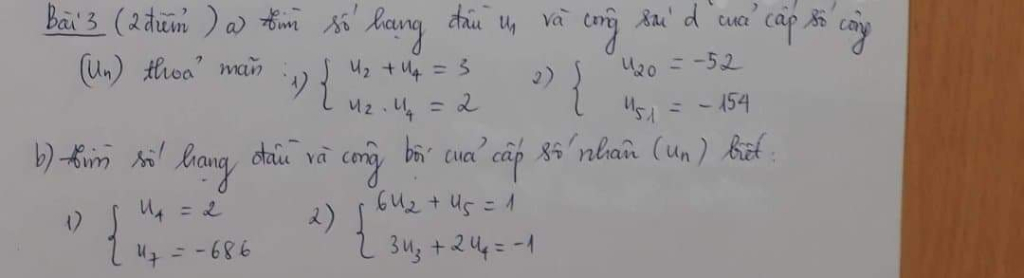 Bài 3 (2 điểm) a) tìm số hạng đầu u₁ và công sai d của cấp số cộng
(Uₙ) thoả mãn: 1) { u₂ + u₄ = 3 2) { u₂₀ = -52
u₂ . u₄ = 2 u₅₁ = -154
b) tìm số hạng đầu và công bội của cấp số nhân (uₙ) biết:
1) { u₄ = 2 2) { 6u₂ + u₅ = 1
u₇ = -686 3u₃ + 2u₄ = -1